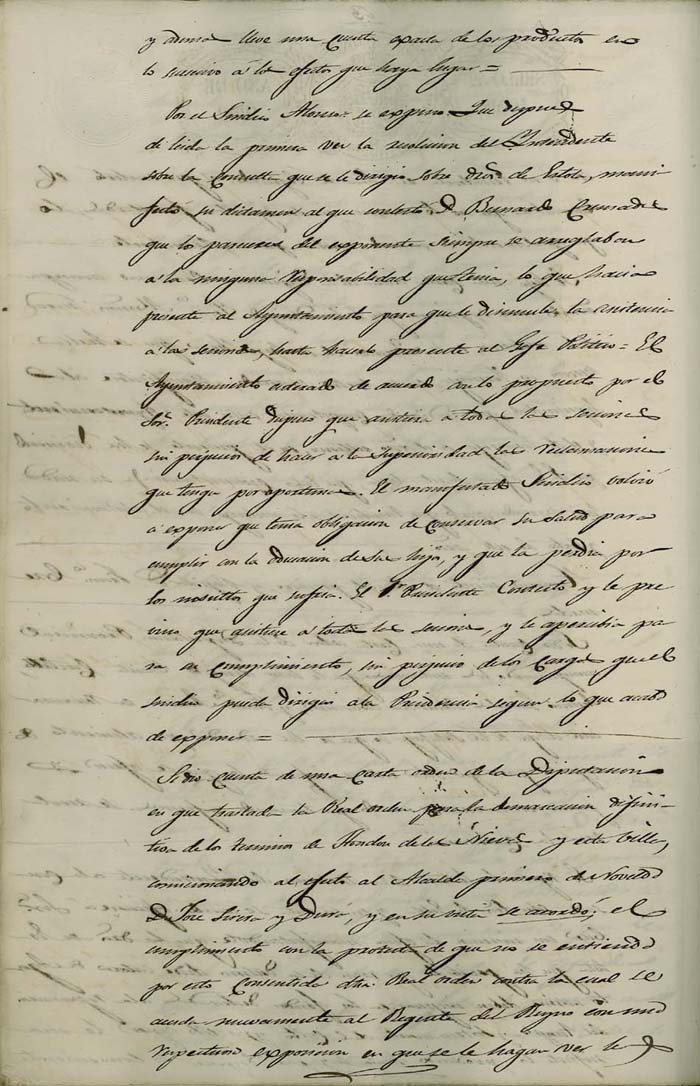 y ademas lleve una cuenta exacta de los productos en
lo sucesivo á los efectos que haya lugar =
Por el Sindico Alonso se expuso: Que despues
de leida la primera vez la resolucion del Intendente
sobre la consulta que se le dirigió sobre dros de Estola, mani-
festó su dictamen al que contestó D. Bernardo Cremades
que los pareceres del exponente siempre se arreglaban
á la ninguna responsabilidad que tenia, lo que hacia
presente al Ayuntamiento para que le disimule la asistencia
á las sesiones, hasta hacerlo presente al Gefe Politico = El
Ayuntamiento enterado de acuerdo con lo propuesto por el
Sor. Presidente dispuso que asistiera a todas las sesiones
sin perjuicio de hacer á la Superioridad las reclamaciones
que tenga por oportunas. El manifestado Sindico volvió
á exponer que tenia obligacion de conservar su salud para
cumplir con la educacion de sus hijos, y que la perdia por
los insultos que sufria. El Sr. Presidente contestó y le pre-
vino que asistiese a todas las sesiones, y le apercibia pa-
ra su cumplimiento, sin perjuicio de los cargos que el
Sindico pueda dirigir a la Presidencia segun lo que acaba
de exponer =
Se dio cuenta de una carta orden de la Diputacion
en que traslada la Real orden para la demarcacion difini-
tiva de los terminos de Hondon de las Nieves y esta Villa,
comicionando al efecto al Alcalde primero de Novelda
D. José Sirera y Dura, y en su vista se acordó; el
cumplimiento con la protesta de que no se entienda
por esto consentida dha. Real orden contra la cual se
acuda nuevamente al Regente del Reyno con una
respectuosa exposicion en que se le hagan ver los